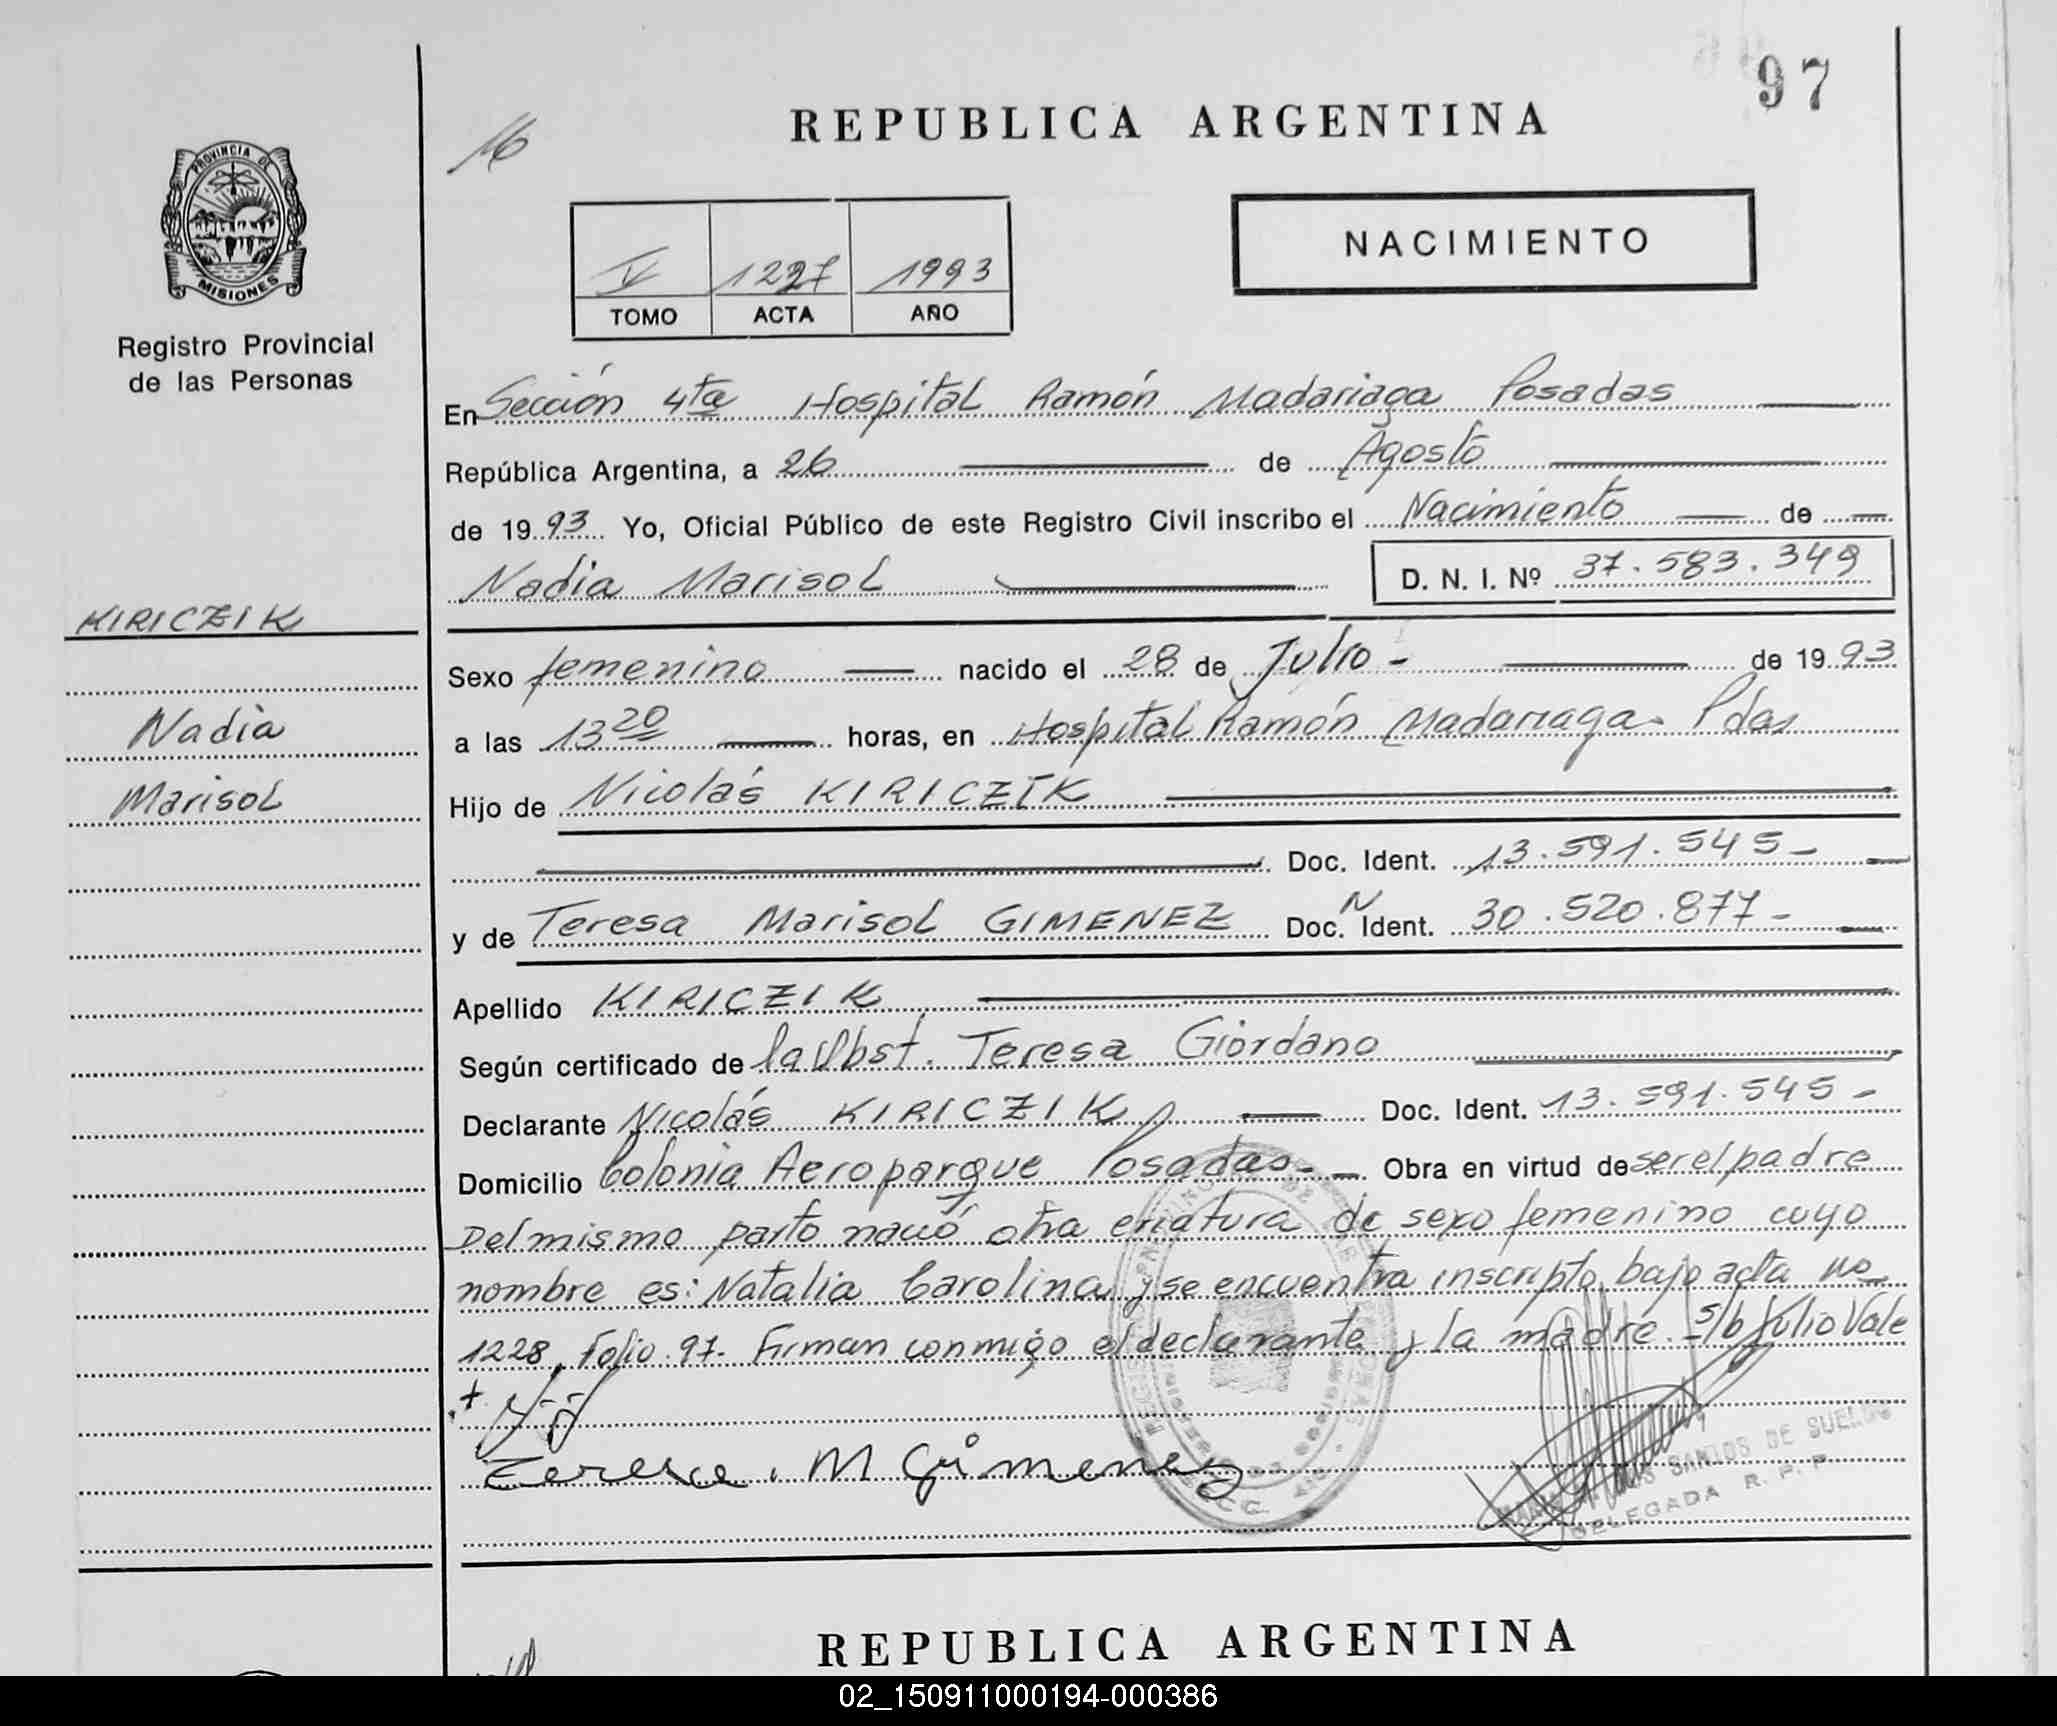 97
REPUBLICA ARGENTINA
16
PROVINCIA DE
MISIONES
Registro Provincial
de las Personas
V 1227 1993
TOMO ACTA AÑO
NACIMIENTO
En Sección 4ta Hospital Ramón Madariaga Posadas
República Argentina, a 26 de Agosto
de 1993 Yo, Oficial Público de este Registro Civil inscribo el Nacimiento de
Nadia Marisol D. N. I. Nº 37.583.349
KIRICZIK
Nadia
Marisol
Sexo femenino nacido el 28 de Julio - de 1993
a las 13 20 horas, en Hospital Ramón Madariaga - Pdas
Hijo de Nicolás KIRICZIK
Doc. Ident. 13.591.545-
y de Teresa Marisol GIMENEZ Doc. N Ident. 30.520.877-
Apellido KIRICZIK
Según certificado de la Obst. Teresa Giordano
Declarante Nicolás KIRICZIK Doc. Ident. 13.591.545-
Domicilio Colonia Aeroparque Posadas.- Obra en virtud de ser el padre
Del mismo parto nació otra criatura de sexo femenino cuyo
nombre es: Natalia Carolina y se encuentra inscripto bajo acta no
1228, Folio 97. Firman conmigo el declarante y la madre. S/b Julio Vale
Teresa . M Gimenez
SANTOS DE SUELDO
DELEGADA R. P. P.
REPUBLICA ARGENTINA
02_150911000194-000386